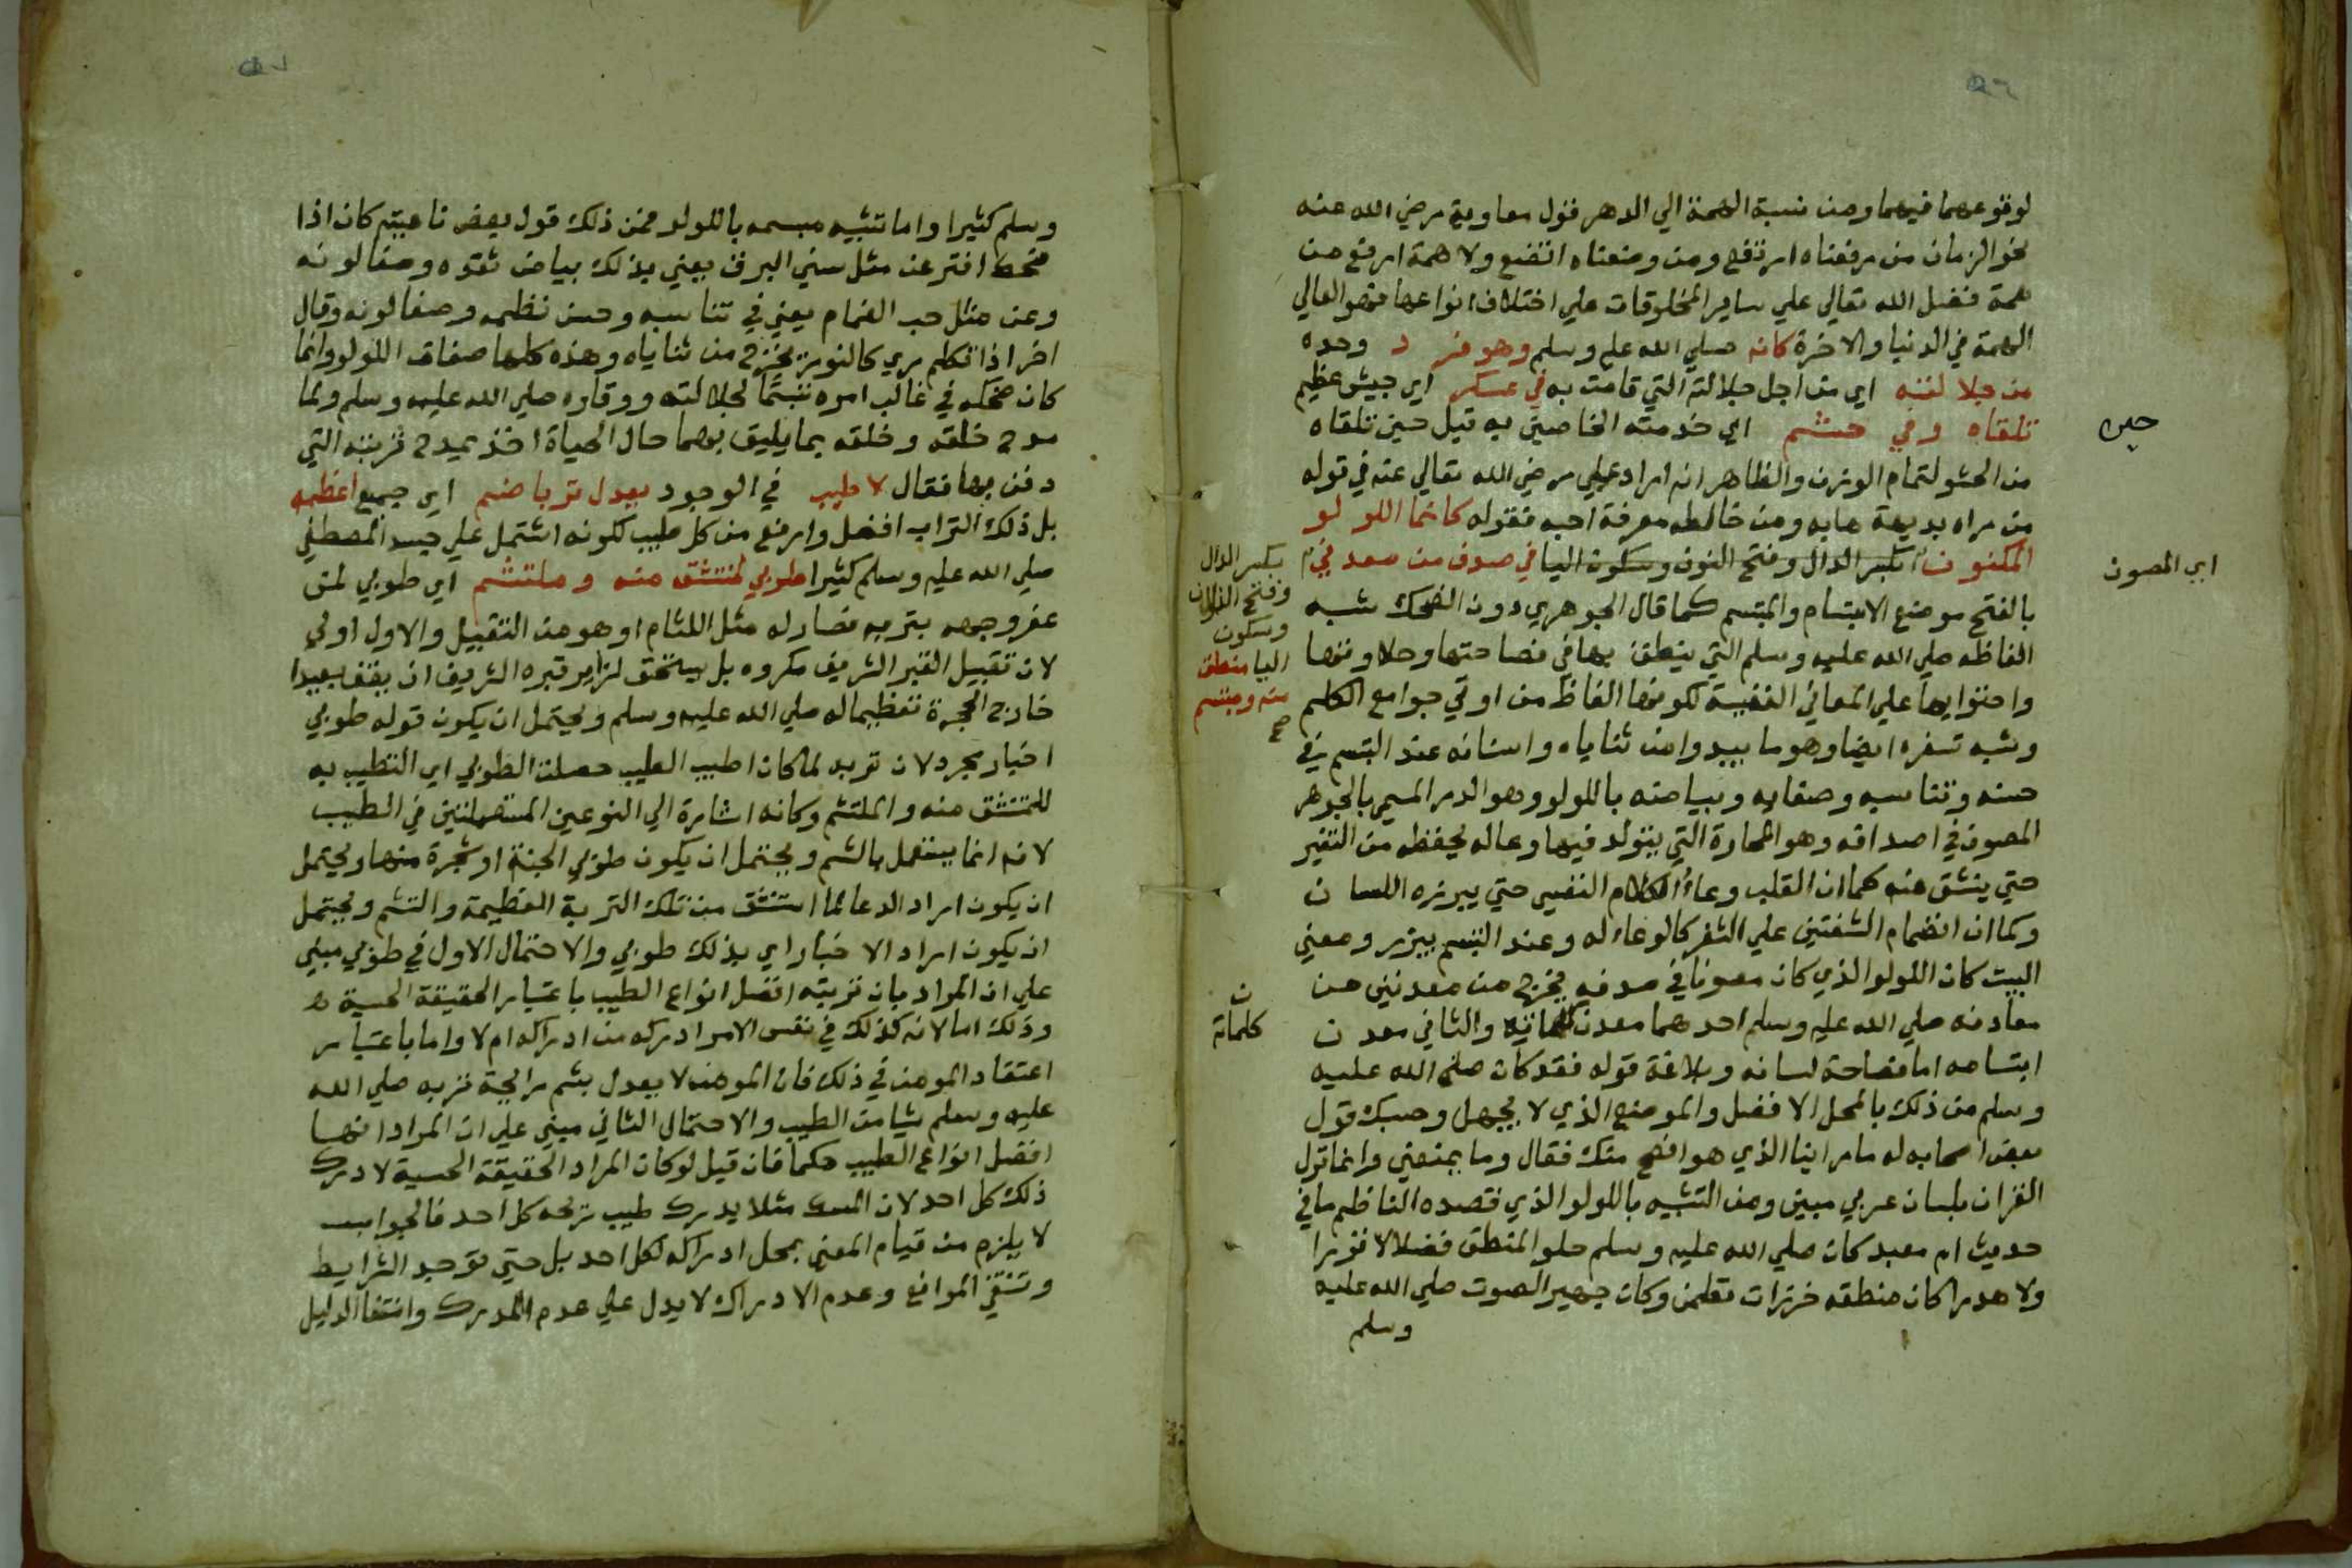 لوقوعهما فيهما ومن نسبة الهمة الي الدهر قول معاوية رضي الله عنه
نحو الزمان من رفعناه ارتفع ومن وضعناه اتضع ولا همة ارفع من
همة فضل الله تعالي علي ساير المخلوقات علي اختلاف انواعها فهو العالي
الهمة في الدنيا والاخرة كانه صلي الله عليه وسلم وهو فر د وحده
من جلالته اي من اجل جلالته التي قامت به في عسكر اي جيش عظيم
تلقاه وفي حشم اي خدمته الخاصين به قيل حين تلقاه
حين
من الحشو لتمام الوزن والظاهر انه اراد علي رضي الله تعالي عنه في قوله
من راه بديهة هابه ومن خالطه معرفة احبه فقوله كانما اللو لو
المكنون بكسر الدال وفتح النون وسكون اليا في صدف من معدني
اي المصون
بكسر الدال
وفتح النون
وسكون
اليا منطق
منه ومبتسم
صح
بالفتح موضع الابتسام والمبتسم كما قال الجوهري دون الضحك شبه
الفاظه صلي الله عليه وسلم التي ينطق بها في فصاحتها وحلاوتها
واحتوايها علي المعاني النفيسة لكونها الفاظ من اوتي جوامع الكلم
وشبه ثغره ايضا وهو ما يبدوا من ثناياه واسنانه عند التبسم في
حسنه وتناسبه وصفايه وبياضه باللولو وهو الدر المسمي بالجوهر
المصون في اصدافه وهو المحارة التي يتولد فيها وعاله يحفظه من التغير
حتي ينشق عنه كما ان القلب وعاء الكلام النفسي حتي يبرزه اللسان
وكما ان انضمام الشفتين علي الثغر كالوعاء له وعند التبسم يبرز ومعني
البيت كان اللولو الذي كان مصونا في صدفه يخرج من معدنين من
معادنه صلي الله عليه وسلم احدهما معدن كلماته والثاني معدن
كلماته
ابتسامه اما فصاحة لسانه وبلاغة قوله فقد كان صلي الله عليه
وسلم من ذلك بالمحل الافضل والموضع الذي لا يجهل وحسبك قول
بعض اصحابه له ما راينا الذي هو افصح منك فقال وما يمنعني وانما نزل
القران بلسان عربي مبين ومن التشبيه باللولو الذي قصده الناظم ما في
حديث ام معبد كان صلي الله عليه وسلم حلو المنطق فضلا لا نزرا
ولا هدرا كان منطقه خرزات نظمن وكان جهير الصوت صلي الله عليه
وسلم
وسلم كثيرا واما تشبيه مبسمه باللولو فمن ذلك قول بعض ناعتيه كان اذا
ضحك افتر عن مثل سني البرق يعني بذلك بياض ثغره وصفا لونه
وعن مثل حب الغمام يعني في تناسبه وحسن نظمه وصفا لونه وقال
اخر اذا تكلم ري كالنور يخرج من ثناياه وهذه كلها صفات اللولو وانما
كان ضحكه في غالب امره تبسما لجلالته ووقاره صلي الله عليه وسلم ولما
مدح خلقه وخلقه بما يليق بهما حال الحياة اخذ يمدح تربته التي
دفن بها فقال لا طيب في الوجود يعدل تربا ضم اي جميع اعظمه
بل ذلك التراب افضل وارفع من كل طيب لكونه اشتمل علي جسد المصطفي
صلي الله عليه وسلم كثيرا طوبي لمنتشق منه وملتثم اي طوبي لمن
عفر وجهه بتربه فصار له مثل اللثام او هو من التقبيل والاول اولي
لان تقبيل القبر الشريف مكروه بل يستحق لزاير قبره الشريف ان يقف بعيدا
خارج الحجرة تعظيما له صلي الله عليه وسلم ويحتمل ان يكون قوله طوبي
اخبار مجرد لان تربه لما كان اطيب الطيب حصلت الطوبي اي التطيب به
للمنتشق منه والملتثم وكانه اشارة الي النوعين المستعملتين في الطيب
لانه انما يستعمل بالشم ويحتمل ان يكون طوبي الجنة او شجرة منها ويحتمل
ان يكون اراد الدعا لما استنشق من تلك التربة العظيمة والتثم ويحتمل
ان يكون اراد الاخبار اي بذلك طوبي والاحتمال الاول في طوبي مبني
علي ان المراد بان تربته افضل انواع الطيب باعتبار الحقيقة الحسية
وذلك اما لانه كذلك في نفس الامر ادركه من ادراكه ام لا واما باعتبار
اعتقاد المومن في ذلك فان المومن لا يعدل بشم رايحة تربه صلي الله
عليه وسلم شيا من الطيب والاحتمال الثاني مبني علي ان المراد انها
افضل انواع الطيب حكما فان قيل لو كان المراد الحقيقة الحسية لادرك
ذلك كل احد لان المسك مثلا يدرك طيب ريحه كل احد فالجواب
لا يلزم من قيام المعني بمحل ادراكه لكل احد بل حتي توجد الشرايط
وتنتفي الموانع وعدم الادراك لا يدل علي عدم المدرك وانتفا الدليل